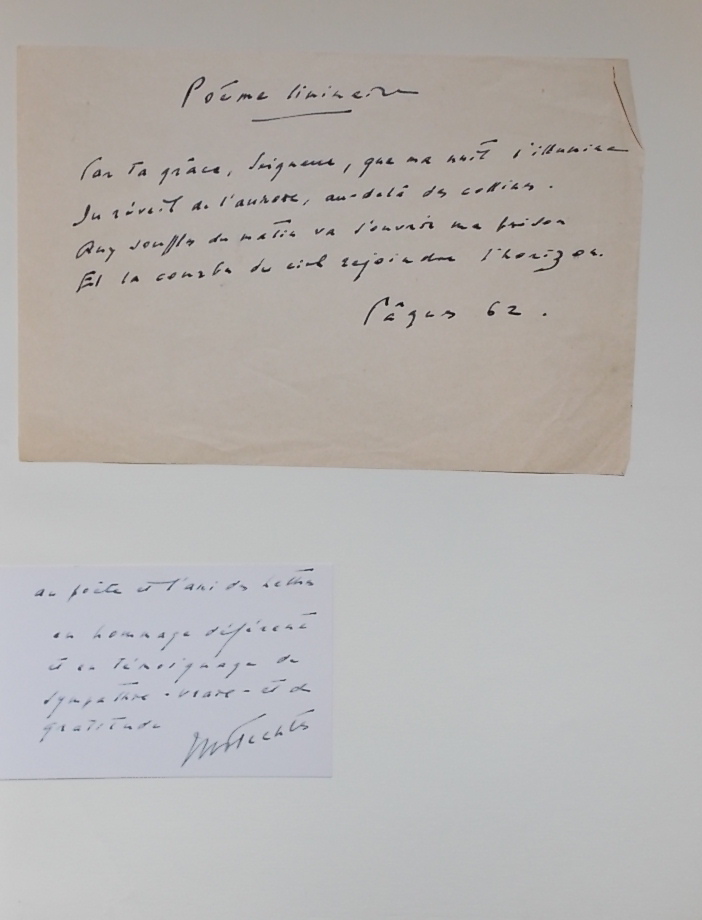 Poème liminaire
Par ta grâce, Seigneur, que ma nuit s'illumine
Du réveil de l'aurore, au-delà des collines.
Aux souffles du matin va s'ouvrir ma prison
Et la courbe du ciel rejoindre l'horizon.
Pâques 62.
au poète et l'ami des lettres
en hommage déférent
et en témoignage de
sympathie - vraie - et de
gratitude